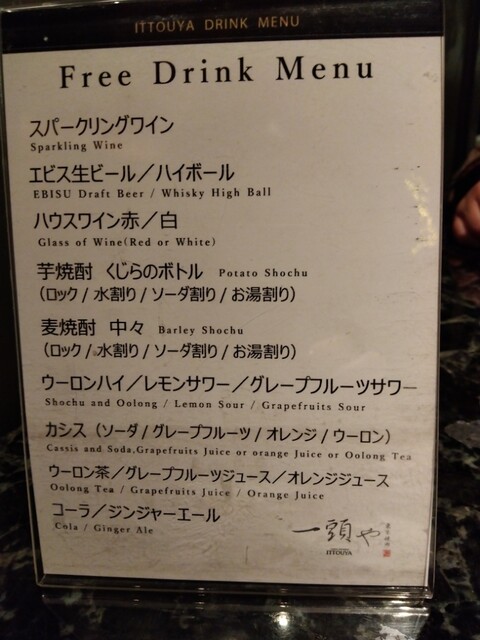 ITTOUYA DRINK MENU
Free Drink Menu
スパークリングワイン
Sparkling Wine
エビス生ビール／ハイボール
EBISU Draft Beer / Whisky High Ball
ハウスワイン赤／白
Glass of Wine(Red or White)
芋焼酎 くじらのボトル Potato Shochu
（ロック / 水割り / ソーダ割り / お湯割り）
麦焼酎 中々 Barley Shochu
（ロック / 水割り / ソーダ割り / お湯割り）
ウーロンハイ／レモンサワー／グレープフルーツサワー
Shochu and Oolong / Lemon Sour / Grapefruits Sour
カシス（ソーダ / グレープフルーツ / オレンジ / ウーロン）
Cassis and Soda,Grapefruits Juice or orange Juice or Oolong Tea
ウーロン茶／グレープフルーツジュース／オレンジジュース
Oolong Tea / Grapefruits Juice / Orange Juice
コーラ／ジンジャーエール
Cola / Ginger Ale
一頭や
ITTOUYA